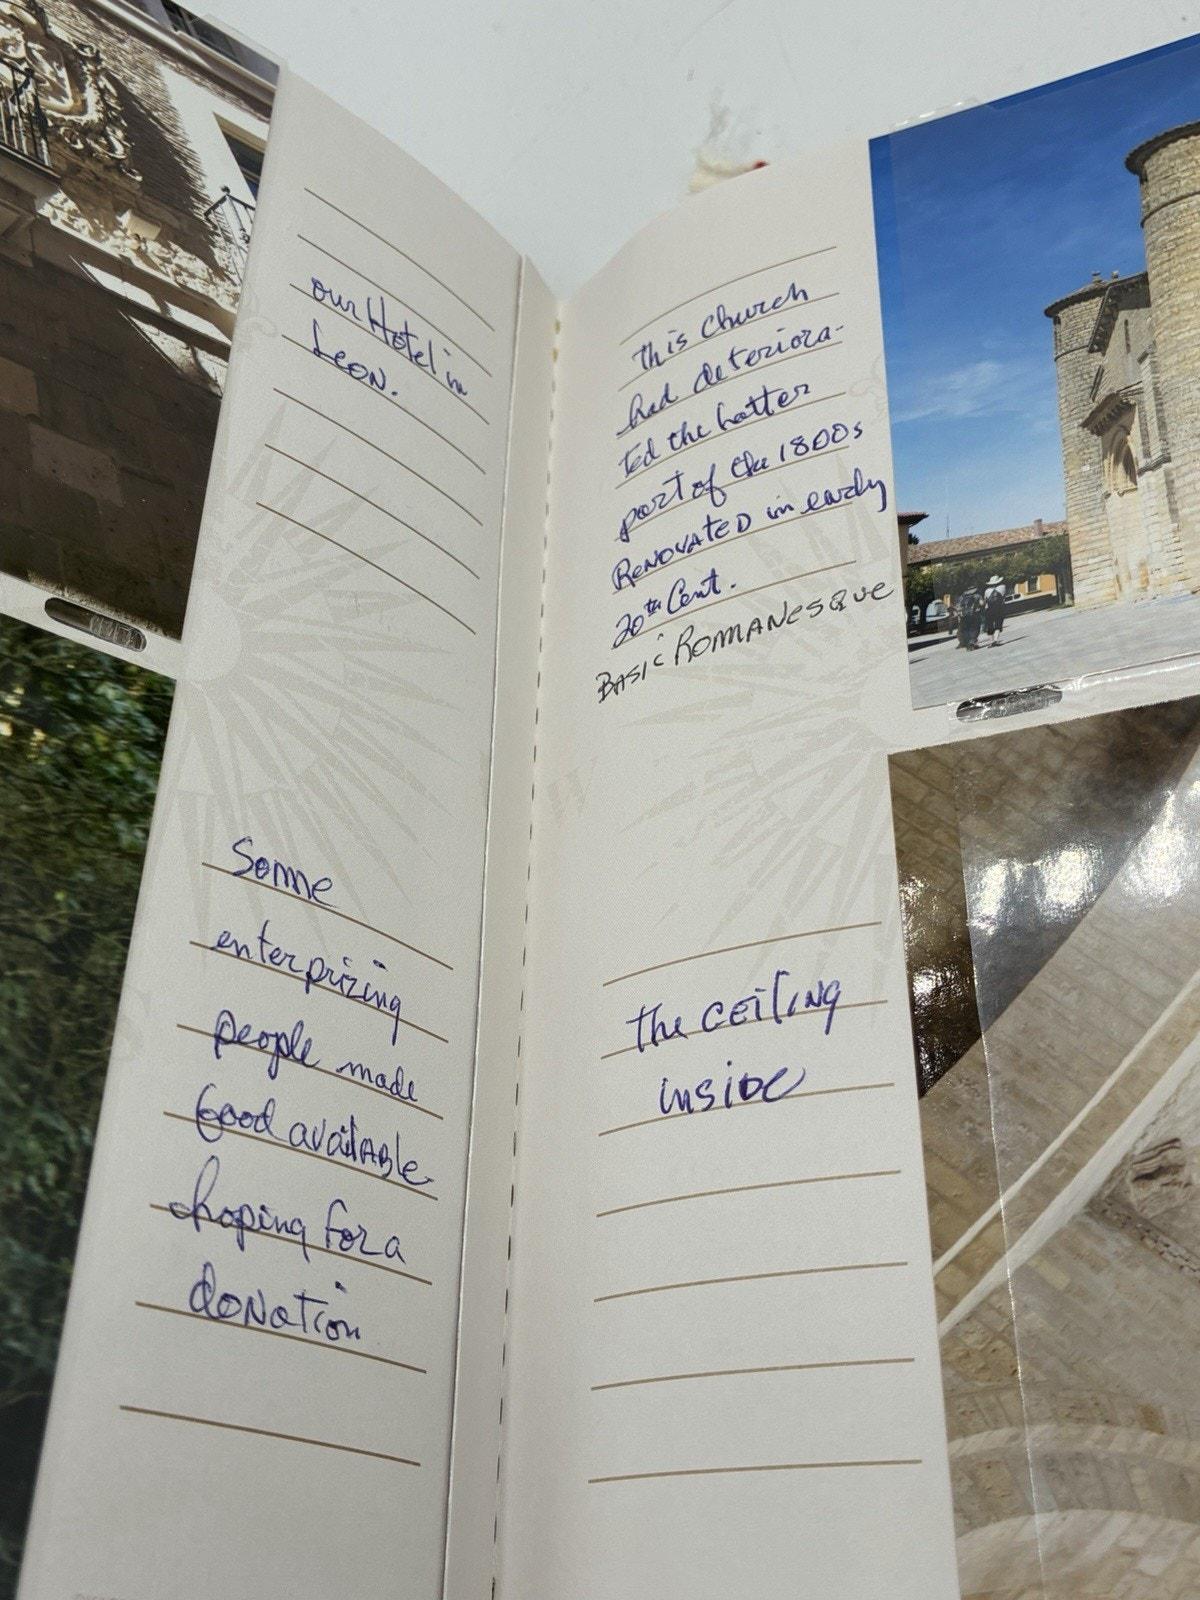 our Hotel in
Leon.
Some
enterprizing
people made
food available
hoping for a
donation
this Church
had deteriora-
ted the latter
part of the 1800s
RENOVATED in early
20th Cent.
BASIC ROMANESQUE
the ceiling
inside